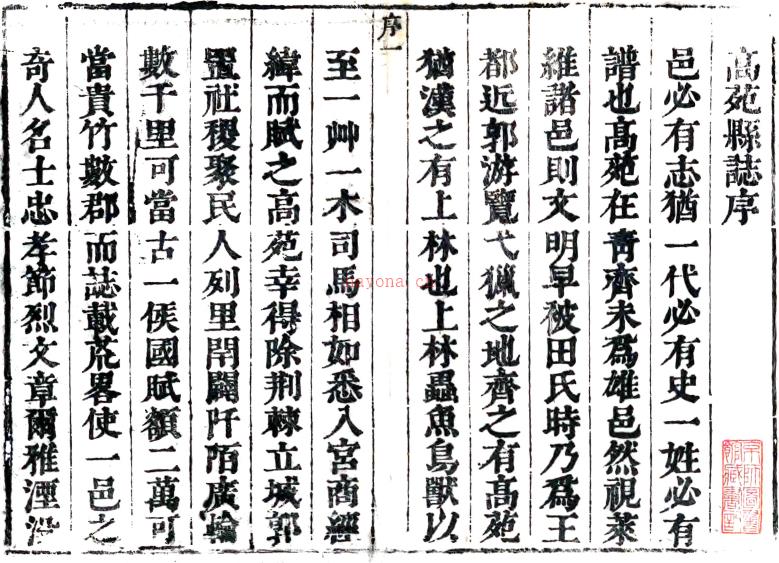 高苑縣誌序
邑必有志猶一代必有史一姓必有
譜也高苑在青齊未爲雄邑然視萊
維諸邑則文明早被田氏時乃爲王
都近郭游覽弋獵之地齊之有高苑
猶漢之有上林也上林蟲魚鳥獸以
序一
至一艸一木司馬相如悉入宮商經
緯而賦之高苑幸得除荆棘立城郭
置社稷聚民人列里閈闢阡陌廣輪
數千里可當古一侯國賦額二萬可
當貴竹數郡而誌載荒畧使一邑之
奇人名士忠孝節烈文章爾雅湮沒